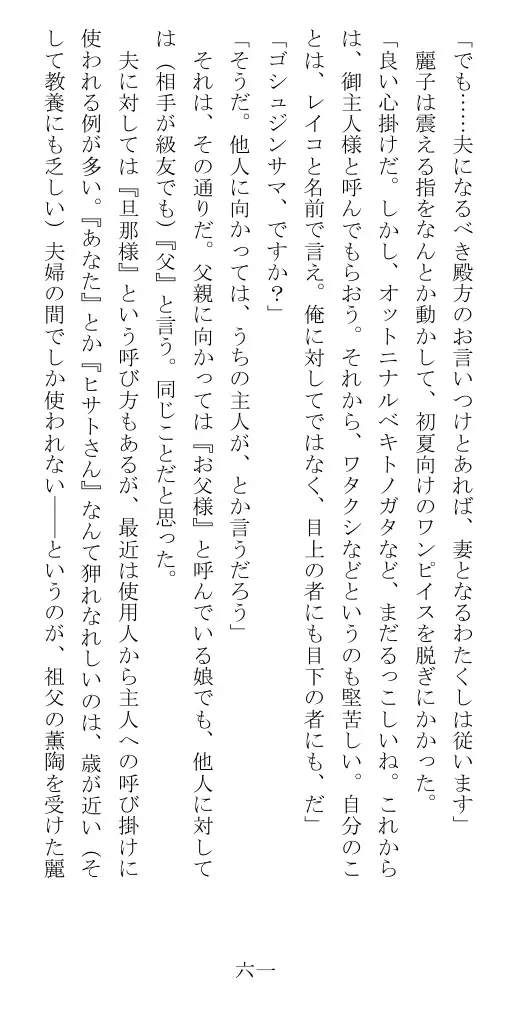 「でも……夫になるべき殿方のお言いつけとあれば、妻となるわたくしは従います」
　麗子は震える指をなんとか動かして、初夏向けのワンピイスを脱ぎにかかった。
「良い心掛けだ。しかし、オットニナルベキトノガタなど、まだるっこしいね。これから
は、御主人様と呼んでもらおう。それから、ワタクシなどというのも堅苦しい。自分のこ
とは、レイコと名前で言え。俺に対してではなく、目上の者にも目下の者にも、だ」
「ゴシュジンサマ、ですか？」
「そうだ。他人に向かっては、うちの主人が、とか言うだろう」
　それは、その通りだ。父親に向かっては『お父様』と呼んでいる娘でも、他人に対して
は（相手が級友でも）『父』と言う。同じことだと思った。
　夫に対しては『旦那様』という呼び方もあるが、最近は使用人から主人への呼び掛けに
使われる例が多い。『あなた』とか『ヒサトさん』なんて狎れなれしいのは、歳が近い（そ
して教養にも乏しい）夫婦の間でしか使われない――というのが、祖父の薫陶を受けた麗
六一